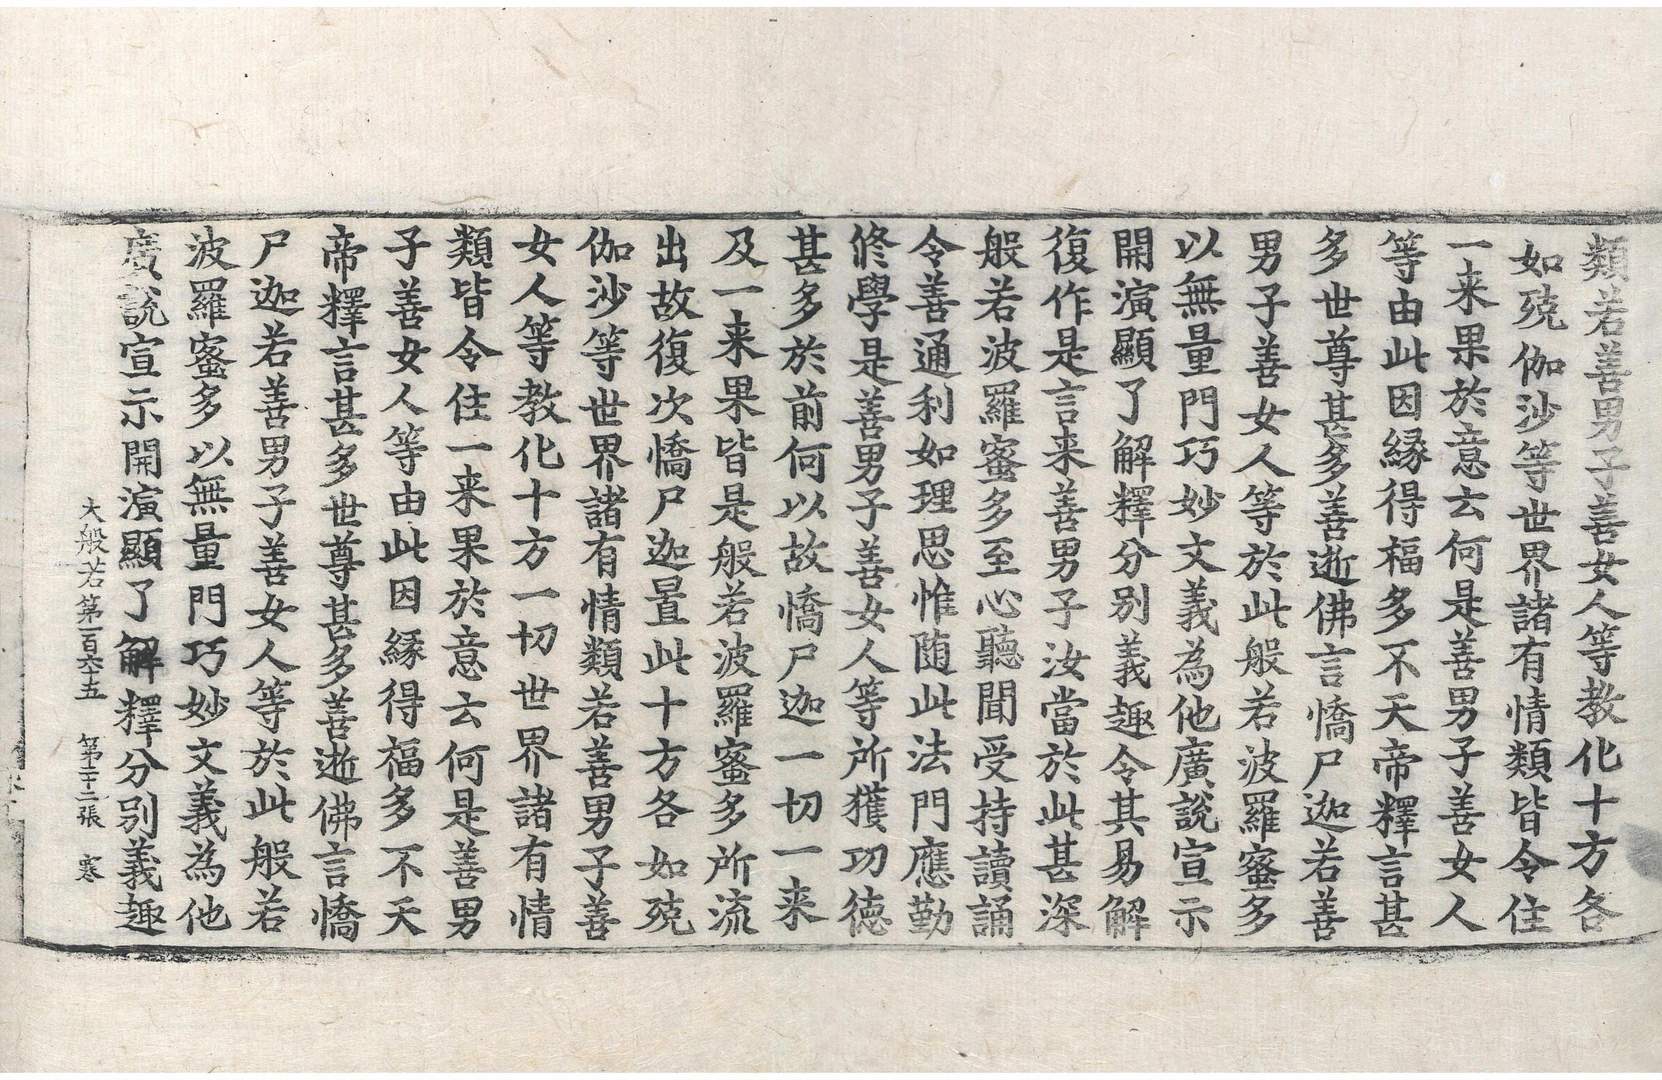 類若善男子善女人等教化十方各
如殑伽沙等世界諸有情類皆令住
一来果於意云何是善男子善女人
等由此因縁得福多不天帝釋言甚
多世尊甚多善逝佛言憍尸迦若善
男子善女人等於此般若波羅蜜多
以無量門巧妙文義為他廣說宣示
開演顯了解釋分别義趣令其易解
復作是言来善男子汝當於此甚深
般若波羅蜜多至心聽聞受持讀誦
令善通利如理思惟随此法門應勤
修學是善男子善女人等所獲功德
甚多於前何以故憍尸迦一切一来
及一来果皆是般若波羅蜜多所流
出故復次憍尸迦置此十方各如殑
伽沙等世界諸有情類若善男子善
女人等教化十方一切世界諸有情
類皆令住一来果於意云何是善男
子善女人等由此因縁得福多不天
帝釋言甚多世尊甚多善逝佛言憍
尸迦若善男子善女人等於此般若
波羅蜜多以無量門巧妙文義為他
廣說宣示開演顯了解釋分别義趣
大般若第一百六十五 第二十二張 寒